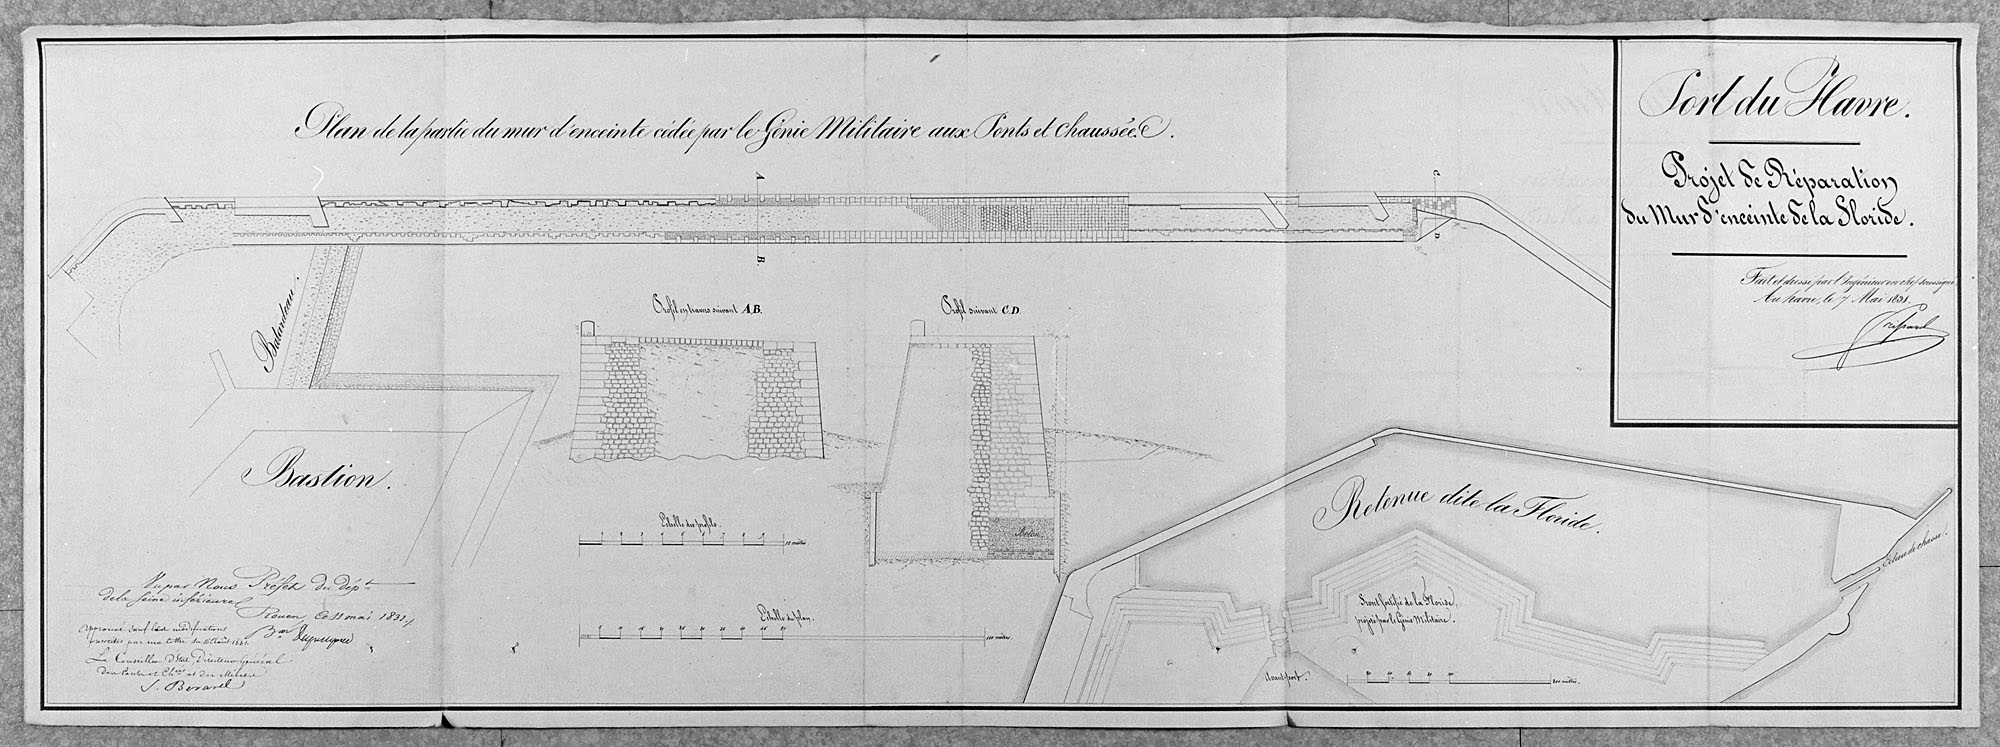 Port du Havre.
Projet de Réparation
du Mur d'enceinte de la Floride.
Fait et dressé par l'Ingénieur en chef soussigné,
Au havre, le 7 Mai 1831.
Plan de la partie du mur d'enceinte cédée par le Génie Militaire aux Ponts et Chaussées.
A
B
C
D
Batardeau.
Bastion.
Profil en travers suivant A.B.
Profil suivant C.D.
Béton
Echelle des profils.
10 mètres
Echelle du plan.
100 mètres.
Retenue dite la Floride.
Ecluse de chasse.
Front fortifié de la Floride,
projeté par le Génie Militaire.
Avant-port.
200 mètres.
Vu par Nous Préfet du dépt
de la Seine inférieure
Rouen, ce 11 mai 1831
Bon
approuvé sauf les modifications
Le Conseiller d'Etat, Directeur Général
des Ponts et Chées et des Mines
S. Berard